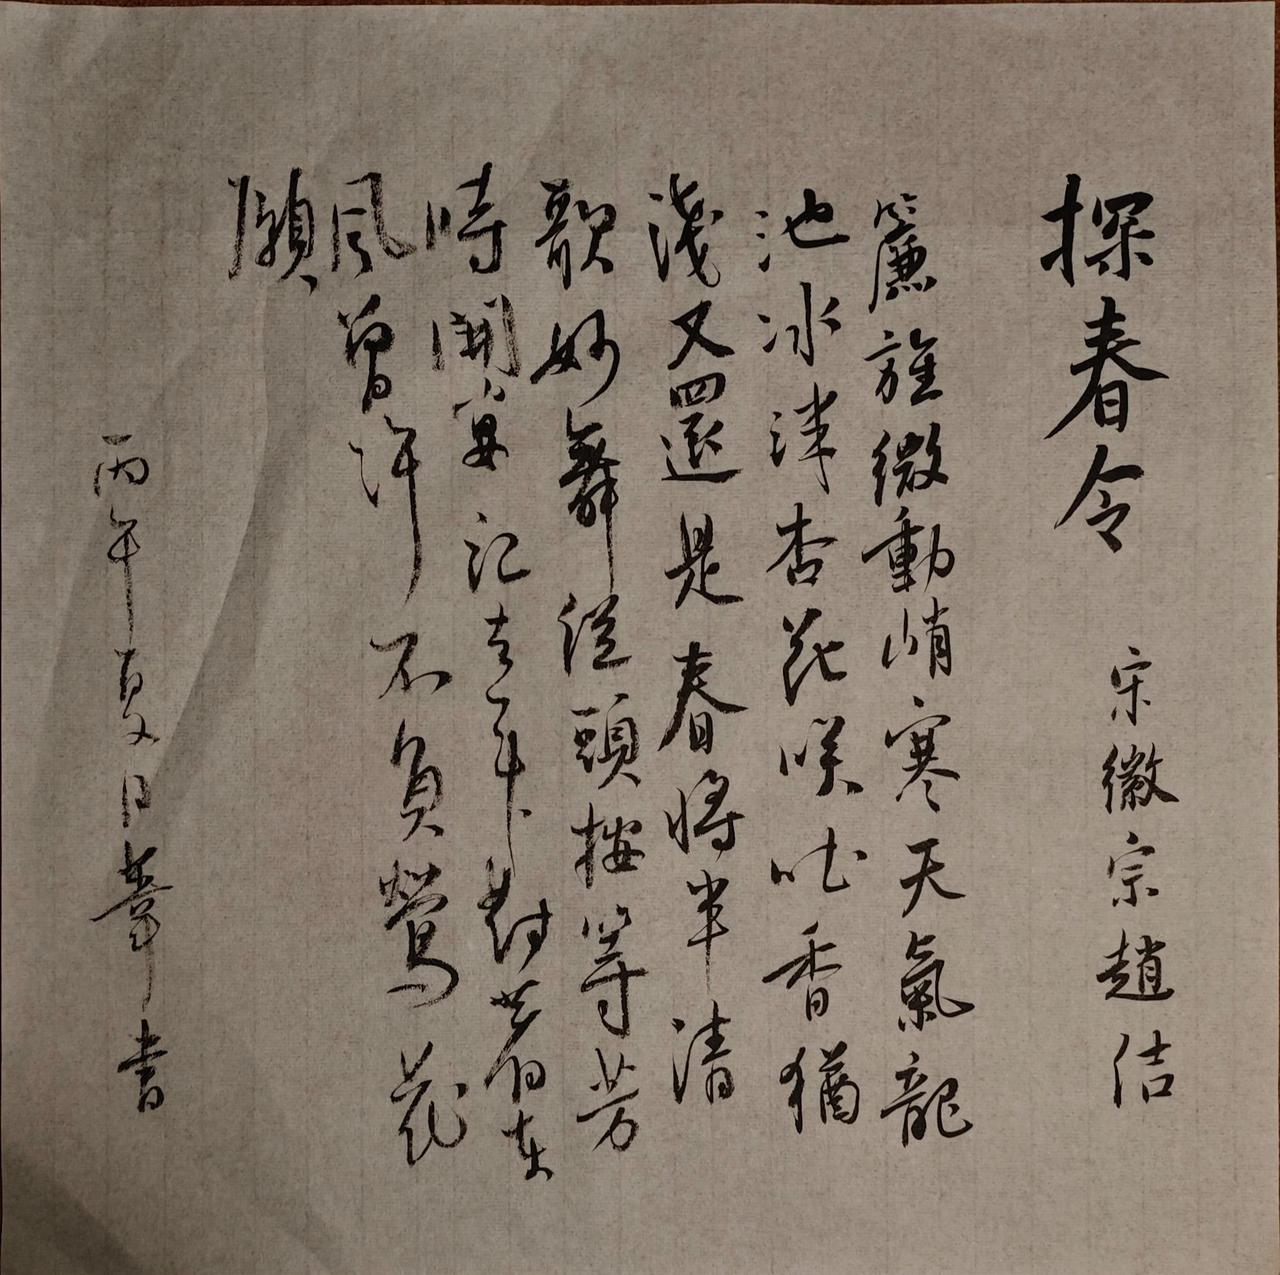 探春令 宋徽宗趙佶
簾旌微動峭寒天氣龍
池冰泮杏花咲吐香猶
淺又還是春將半清
歌妙舞從頭按等芳
時開宴記去年對著東
風曾許不負鶯花
願
丙午夏日書